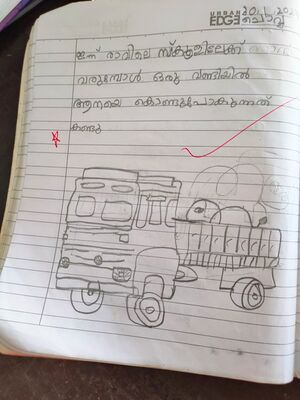 URBAN
EDGE ചൊവ്വ
ഇന്ന് രാവിലെ സ്കൂളിലേക്ക്
വരുമ്പോൾ ഒരു വണ്ടിയിൽ
ആനയെ കൊണ്ടുപോകുന്നത്
കണ്ടു